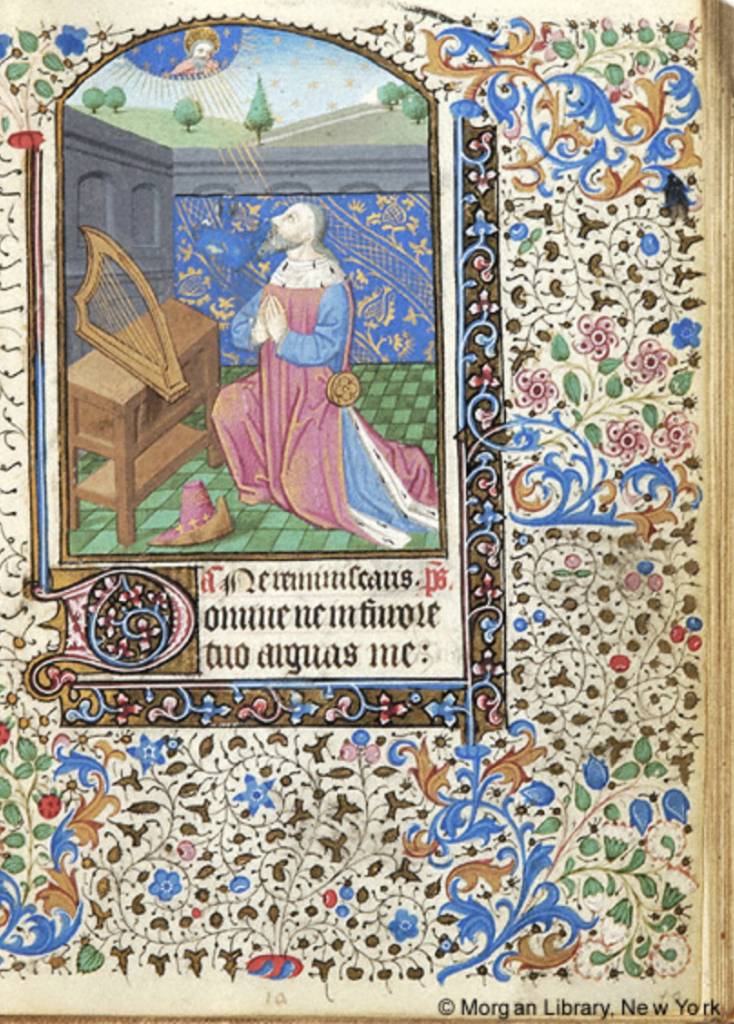 ā Ne reminiscaris. p̄s.
Domine ne in furore
tuo arguas me:
© Morgan Library, New York